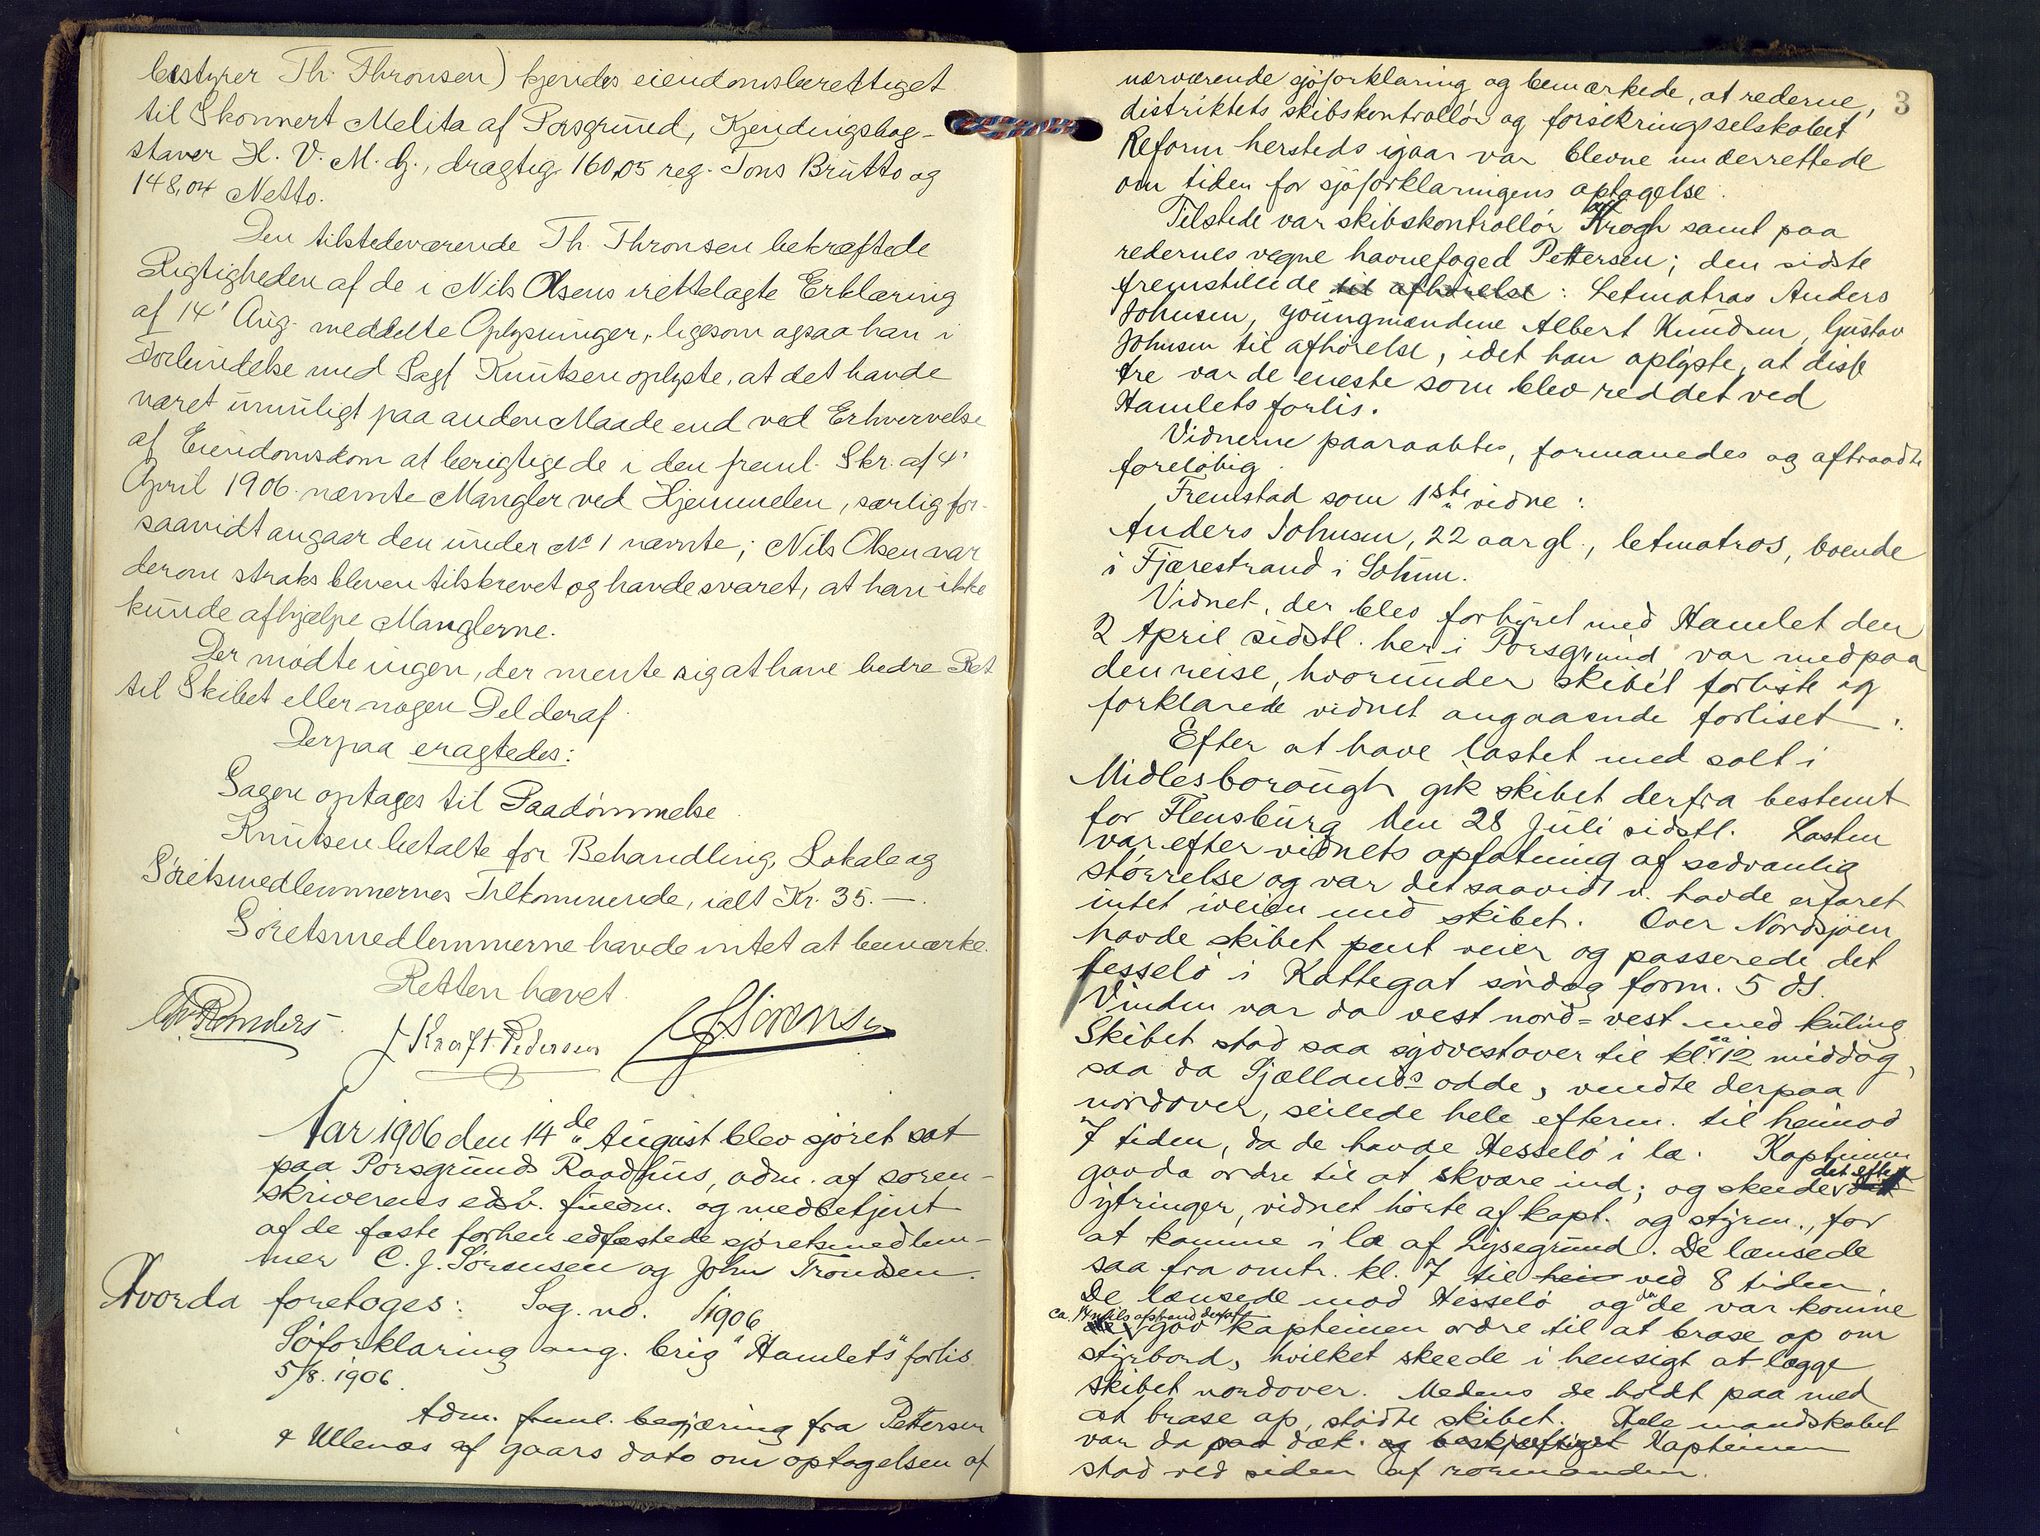 bestyrer Th. Thronsen) kjendes eiendomsberettiget
til Skonnert Melita af Porsgrund, Kjendingsbog-
staver H. V. M. G., drægtig 160,05 reg. Tons Brutto og
148,04 Netto.
Den tilstedeværende Th. Thronsen bekræftede
Rigtigheden af de i Nils Olsens irettelagte Erklæring
af 14' Aug. meddelte Oplysninger, ligesom ogsaa han i
Forbindelse med Sagf Knutsen oplyste, at det havde
været umuligt paa anden Maade end ved Erhvervelse
af Eiendomsdom at berigtige de i den freml. Skr. af 4'
April 1906 nævnte Mangler ved Hjemmelen, særlig for-
saavidt angaar den under No 1 nævnte; Nils Olsen var
derom straks bleven tilskrevet og havde svaret, at han ikke
kunde afhjælpe Manglerne.
Der mødte ingen, der mente sig at have bedre Ret
til Skibet eller nogen Del deraf.
Derpaa eragtedes:
Sagen optages til Paadømmelse.
Knutsen betalte for Behandling, Lokale og
Søretsmedlemmernes Tilkommende, ialt Kr. 35. —.
Søretsmedlemmerne havde intet at bemærke.
Retten hævet.
Randers. J. Kraft. Pedersen C J Sørensen
Aar 1906 den 14de August blev sjøret sat
paa Porsgrunds Raadhus, adm. af soren-
skriverens edsv. fuldm. og medbetjent
af de faste forhen edfæstede sjøretsmedlem-
mer C. J. Sørensen og John Trondsen.
Hvorda foretoges: Sag. no. 1/1906
Søforklaring ang. brig "Hamlets" forlis
5/8. 1906.
Adm. freml. begjæring fra Pettersen
& Ullenæs af gaars dato om optagelsen af
3
nærværende sjøforklaring og bemærkede, at rederne,
distriktets skibskontrollør og forsikringsselskabet
Reform hersteds igaar var blevne underrettede
om tiden for sjøforklaringens optagelse.
Tilstede var skibskontrollør Krogh samt paa
redernes vegne havnefoged Pettersen; den sidste
fremstillede til afhørelse: Letmatros Anders
Johnsen, youngmændene Albert Knudsen, Gustav
Johnsen til afhørelse, idet han oplyste, at disse
tre var de eneste som blev reddet ved
Hamlets forlis.
Vidnerne paaraabtes, formanedes og aftraadte
foreløbig.
Fremstod som 1ste vidne:
Anders Johnsen, 22 aar gl., letmatros, boende
i Fjærestrand i Søhm.
Vidnet, der blev forhyret med Hamlet den
2 April sidstl. her i Porsgrund, var med paa
den reise, hvorunder skibet forliste og
forklarede vidnet angaaende forliset:
Efter at have lastet med salt i
Midlesborough gik skibet derfra bestemt
for Flensburg den 28 Juli sidstl. Lasten
var efter vidnets opfatning af sedvanlig
størrelse og var det saavidt v. havde erfaret
intet iveien med skibet. Over Nordsjøen
havde skibet pent veir og passerede det
Hesselø i Kattegat søndag form. 5 ds.
Vinden var da vest nord=vest med kuling.
Skibet stod saa sydvestover til kl. ca 12 middag,
saa da Sjællands odde, vendte derpaa
nordover, seilede hele efterm. til henimod
7 tiden, da de havde Hesselø i læ. Kapteinen
gav da ordre til at skvære ind; og skeede det efter
ytringer, vidnet hørte af kapt. og styrm., for
at komme i læ af Lysegrund. De lænsede
saa fra omtr. kl. 7 til hen ved 8 tiden.
De lænsede mod Hesselø og da de var komne
ca. 1/4 mils afstand derfra gav kapteinen ordre til at brase op om
styrbord, hvilket skeede i hensigt at lægge
skibet nordover. Medens de holdt paa med
at brase op, stødte skibet. Hele mandskabet
var da paa dæk. og beskjæftiget Kapteinen
stod ved siden af rormanden.